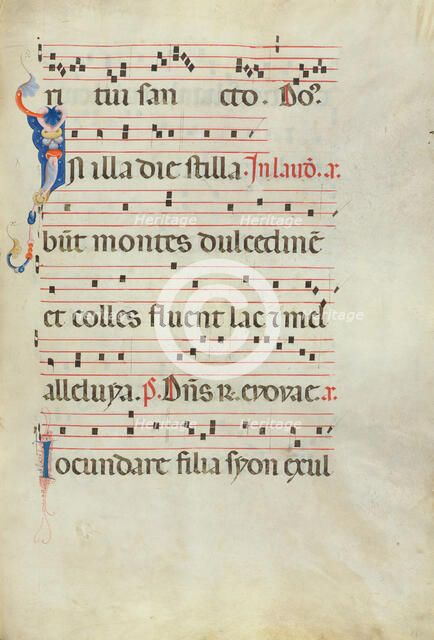 ri tui san cto. Do⁹.
In illa die stilla. In laud̄. a.
būt montes dulcedinē
et colles fluent lac ⁊ mel
alleluya. p̄. Dn̄s R. evovae. a.
Iocundare filia syon exul
Heritage Heritage
Heritage Heritage
Heritage Heritage